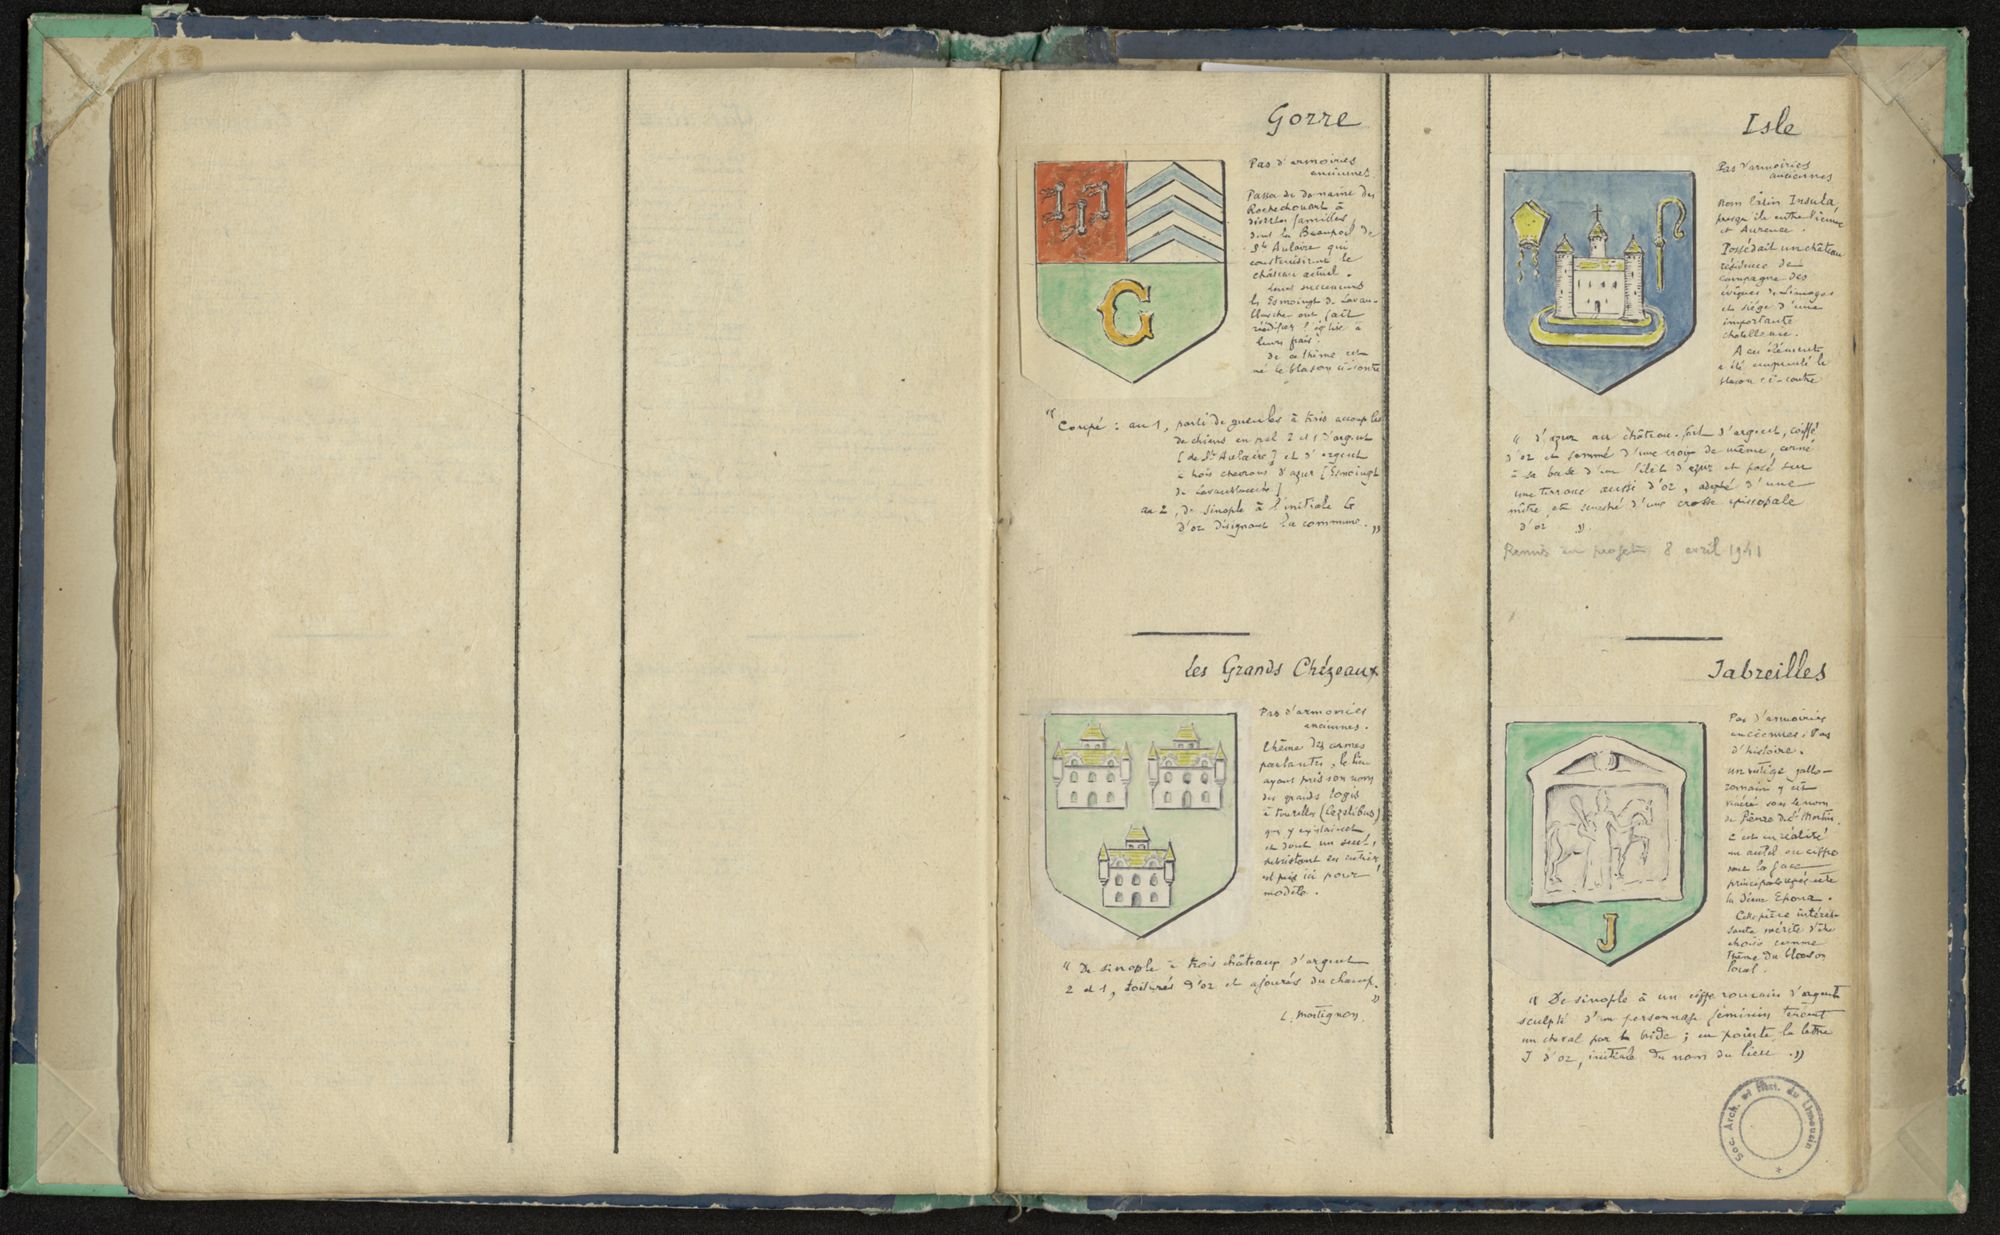 Gorre
Pas d'armoiries
anciennes.
Passa du domaine des
Rochechouart à
diverses familles,
dont les Beaupoil de
Ste Aulaire qui
construisirent le
château actuel.
Leurs successeurs
les Esmoingt de Lavau-
blanche ont fait
réédifier l'église à
leurs frais.
De ce thème est
né le blason ci-contre
"Coupé : au 1, parti de gueules à trois accouples
de chiens en pal 2 et 1 d'argent
[de Ste Aulaire] et d'argent
à trois chevrons d'azur [Esmoingt
de Lavaublanche]
au 2, de sinople à l'initiale G
d'or désignant la commune."
les Grands Chézeaux
Pas d'armoiries
anciennes.
Thème des armes
parlantes, le lieu
ayant pris son nom
des grands logis
à tourelles
qui y existaient,
et dont un seul,
subsistant en entier
est pris ici pour
modèle.
"De sinople à trois châteaux d'argent
2 et 1, toiturés d'or et ajourés du champ.
"
L. Mortignon.
Isle
Pas d'armoiries
anciennes
Nom latin Insula,
presqu'île entre Vienne
et Aurence.
Possédait un château
résidence de
campagne des
évêques de Limoges
et siège d'une
importante
chatellenie.
A ces éléments
a été emprunté le
blason ci-contre
"d'azur au château-fort d'argent, coiffé
d'or et sommé d'une croix de même, cerné
à sa base d'un filet d'azur et posé sur
une terrasse aussi d'or, adextré d'une
mître et senestré d'une crosse épiscopale
d'or".
Remis en projet 8 avril 1941
Jabreilles
Pas d'armoiries
anciennes. Pas
d'histoire.
Un vestige gallo-
romain y est
vénéré sous le nom
de Pierre de St Martin.
C'est en réalité
un autel ou cippe
sur la face
principale
la Déesse Epona.
Cette pièce intéres-
sante mérite d'être
choisie comme
thème du blason
local.
"De sinople à un cippe romain d'argent
sculpté d'un personnage féminin tenant
un cheval par la bride ; en pointe la lettre
J d'or, initiale du nom du lieu."
Soc. Arch. et Hist. du Limousin